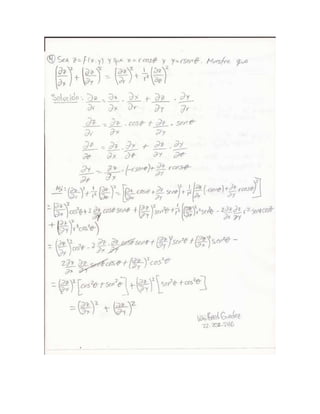 ④ Sea z=f(x,y) y que x=r cosθ y y=r senθ. Muestre que
(∂z/∂x)² + (∂z/∂y)² = (∂z/∂r)² + 1/r² (∂z/∂θ)²
Solución: ∂z/∂r = ∂z/∂x · ∂x/∂r + ∂z/∂y · ∂y/∂r
∂z/∂r = ∂z/∂x · cosθ + ∂z/∂y · senθ
∂z/∂θ = ∂z/∂x · ∂x/∂θ + ∂z/∂y · ∂y/∂θ
∂z/∂θ = ∂z/∂x · (-r senθ) + ∂z/∂y r cosθ
Así: (∂z/∂r)² + 1/r² (∂z/∂θ)² = [∂z/∂x cosθ + ∂z/∂y senθ]² + 1/r² [∂z/∂x (-r senθ) + ∂z/∂y r cosθ]²
= (∂z/∂x)² cos²θ + 2 ∂z/∂x ∂z/∂y cosθ senθ + (∂z/∂y)² sen²θ + 1/r² (∂z/∂x)² r² sen²θ - 2 ∂z/∂x ∂z/∂y r² senθ cosθ
+ (∂z/∂y)² r² cos²θ
= (∂z/∂x)² cos²θ + 2 ∂z/∂x ∂z/∂y cosθ senθ + (∂z/∂y)² sen²θ + (∂z/∂x)² sen²θ -
2 ∂z/∂x ∂z/∂y senθ cosθ + (∂z/∂y)² cos²θ
= (∂z/∂x)² [cos²θ + sen²θ] + (∂z/∂y)² [sen²θ + cos²θ]
= (∂z/∂x)² + (∂z/∂y)²